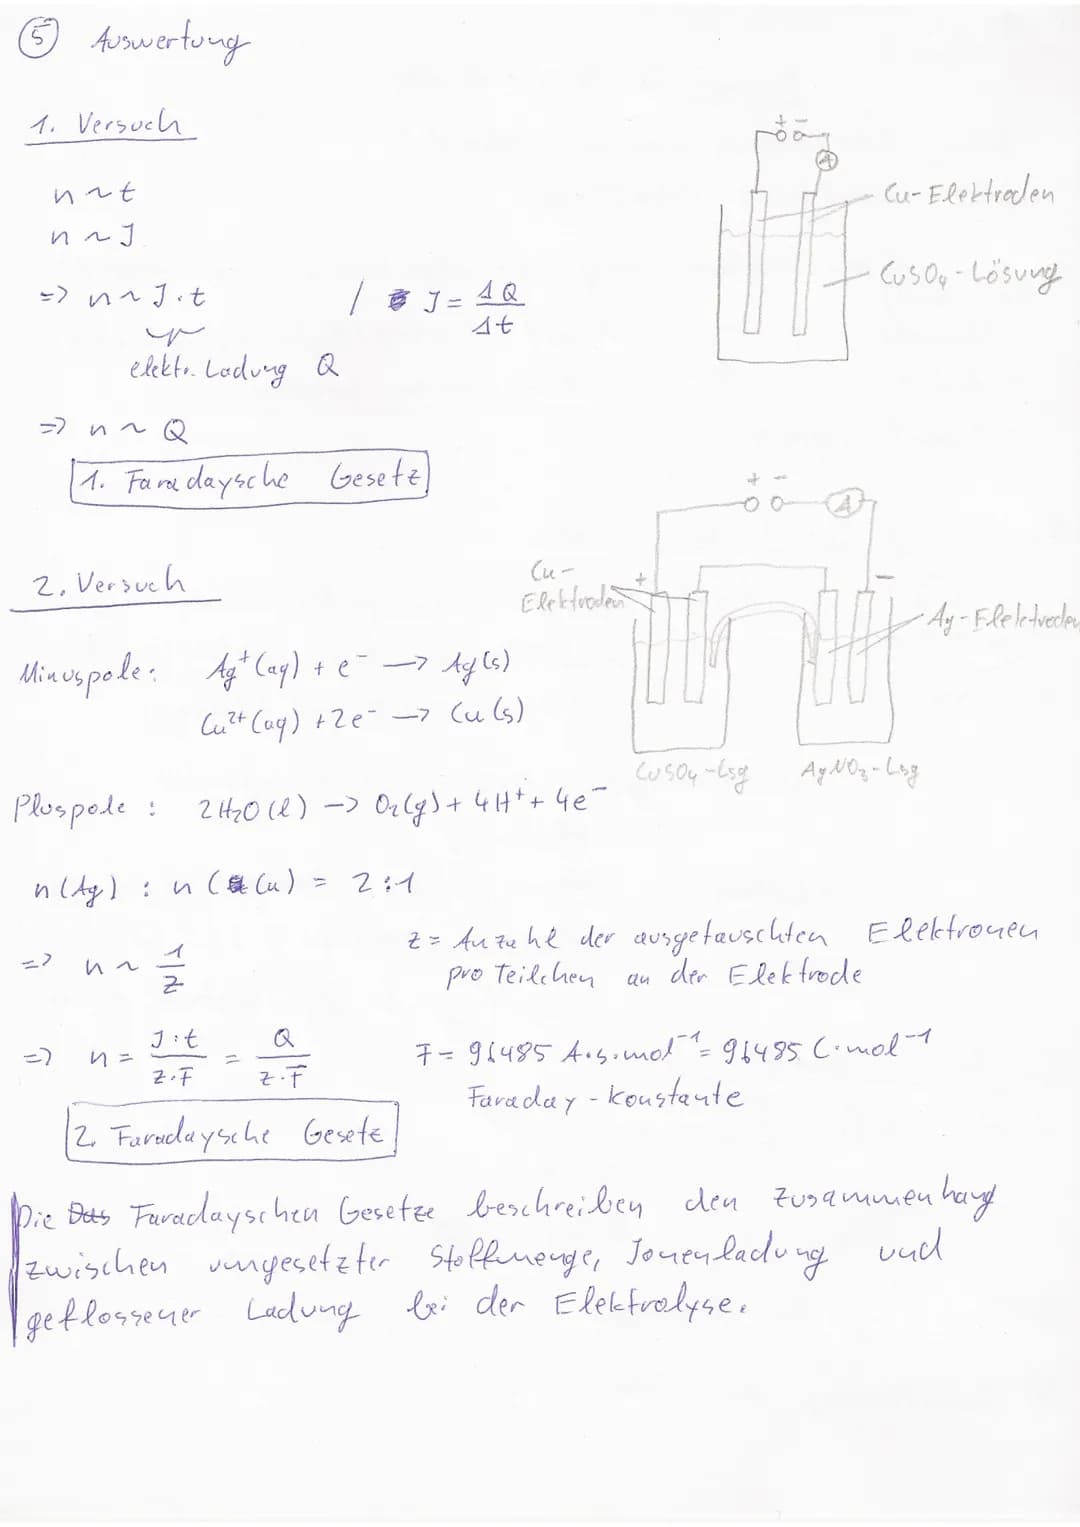 5 Auswertung
1. Versuch
n ~ t
n ~ J
=> n ~ J·t | J = ΔQ/Δt
elektr. Ladung Q
=> n ~ Q
1. Faradaysche Gesetz
+ -
A
Cu-Elektroden
CuSO₄-Lösung
2. Versuch
Minuspole: Ag⁺(aq) + e⁻ → Ag(s)
Cu²⁺(aq) + 2e⁻ → Cu(s)
Pluspole : 2H₂O(l) → O₂(g) + 4H⁺ + 4e⁻
+ -
A
Cu-
Elektroden
+ -
Ag-Elektroden
CuSO₄-Lsg AgNO₃-Lsg
n(Ag) : n(Cu) = 2:1
=> n ~ 1/z
z = Anzahl der ausgetauschten Elektronen
pro Teilchen an der Elektrode
=> n = J·t/z·F = Q/z·F
F = 96485 A·s·mol⁻¹ = 96485 C·mol⁻¹
Faraday-Konstante
2. Faradaysche Gesetz
Die Das Faradayschen Gesetze beschreiben den Zusammenhang
zwischen umgesetzter Stoffmenge, Jonenladung und
geflossener Ladung bei der Elektrolyse.